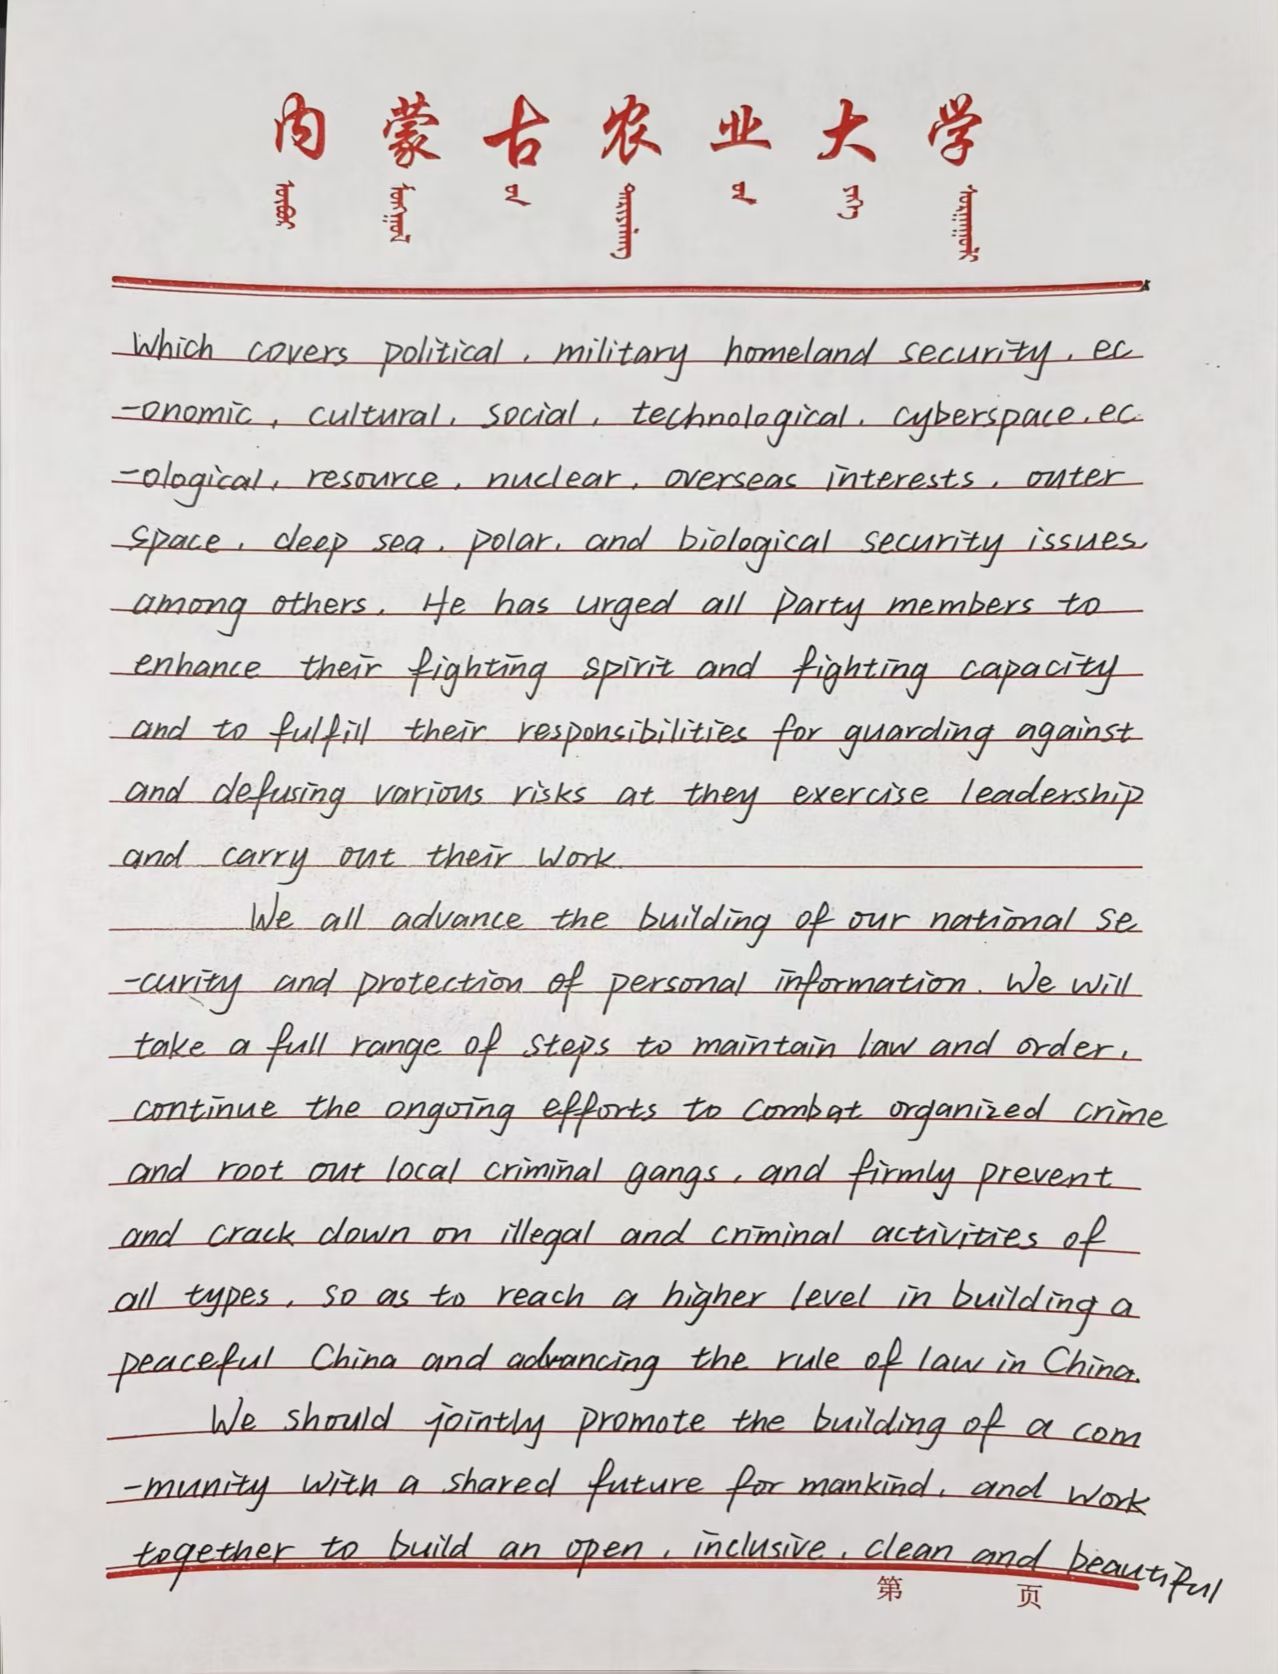 内蒙古农业大学
which covers political, military homeland security, ec
-onomic, cultural, social, technological, cyberspace, ec
-ological, resource, nuclear, overseas interests, outer
space, deep sea, polar, and biological security issues,
among others. He has urged all Party members to
enhance their fighting spirit and fighting capacity
and to fulfill their responsibilities for guarding against
and defusing various risks at they exercise leadership
and carry out their work.
We all advance the building of our national se
-curity and protection of personal information. We will
take a full range of steps to maintain law and order,
continue the ongoing efforts to combat organized crime
and root out local criminal gangs, and firmly prevent
and crack down on illegal and criminal activities of
all types, so as to reach a higher level in building a
peaceful China and advancing the rule of law in China.
We should jointly promote the building of a com
-munity with a shared future for mankind, and work
together to build an open, inclusive, clean and beautiful
第 页